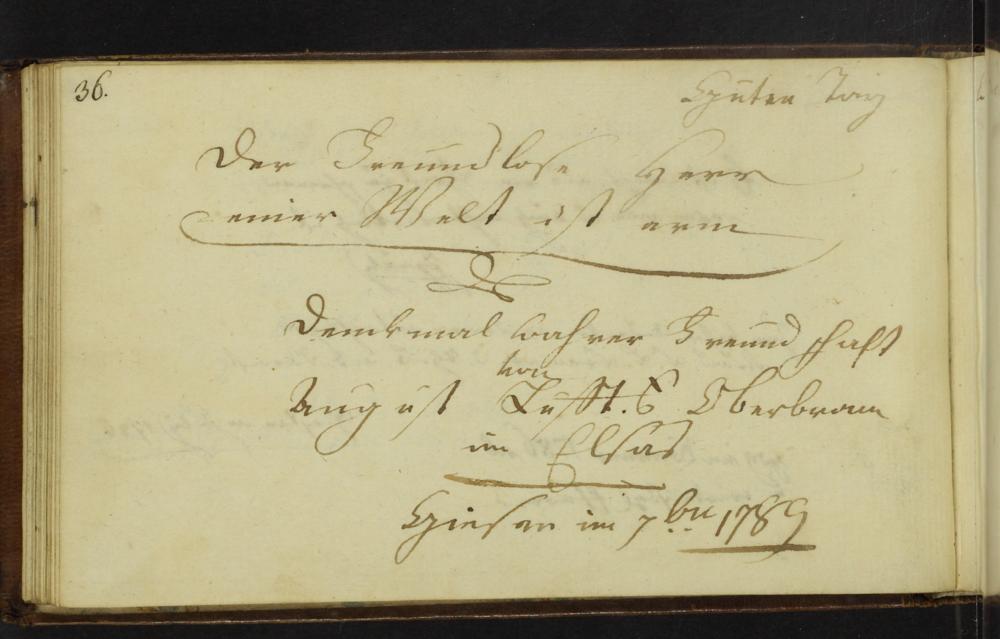 36.
Guten Tag
Der Freundlose Herr
einer Welt ist arm
Denkmal wahrer Freundschaft
von
August Oberbronn
im Elsas
Giesen im 7br 1789